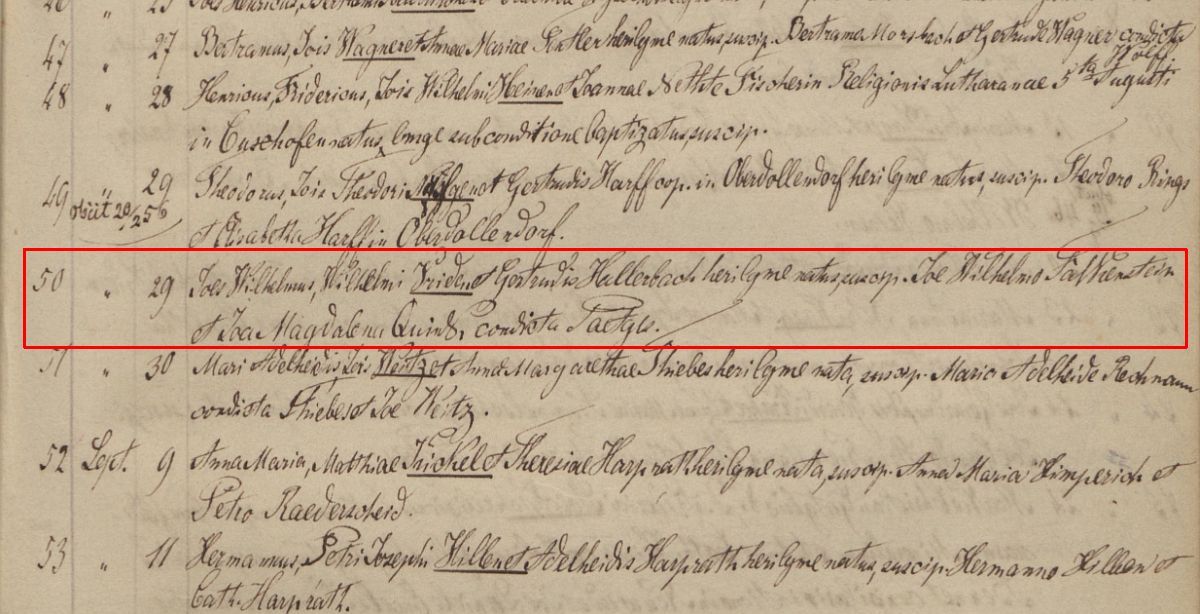 47 " 27 Bertramus, Jois Wagner et Annae Mariae Sentler heri legme natus, suscip. Bertramo Morsbach et Gertrude Wagner condicta Wolff
48 " 28 Henricus, Fridericus, Jois Wilhelmi Heinen et Joannae Nethte Fischerin Religionis Lutharanae 5ta Augusti
in Buschofen natus, longe sub conditione baptizatus, suscip.
49 obiit 20/25 29 Theodorus, Jois Theodori et Gertrudis Harff cop. in Oberdollendorf heri legme natus, suscip. Theodoro Rings
et Elisabetha Harff in Oberdollendorf.
50 " 29 Joes Wilhelmus, Wilhelmi Vriden et Gertrudis Hallerbach heri legme natus, suscip. Joe Wilhelmo Falkenstein
et Joa Magdalena Quinds, condicta
51 " 30 Mari Adelheidis Jois Weitz et Anna Margarethae Thiebes heri legme nata, suscip. Maria Adelheide Rechmann
condicta Thiebes et Joe Weitz.
52 Sept. 9 Anna Maria, Matthiae Krichel et Theresiae Harprath heri legme nata, suscip. Anna Maria Himperich et
Petro Raederscheid.
53 " 11 Hermannus, Petri Josephi Hillen et Adelheidis Harprath heri legme natus, suscip. Hermanno Hillen et
Cath. Harprath.